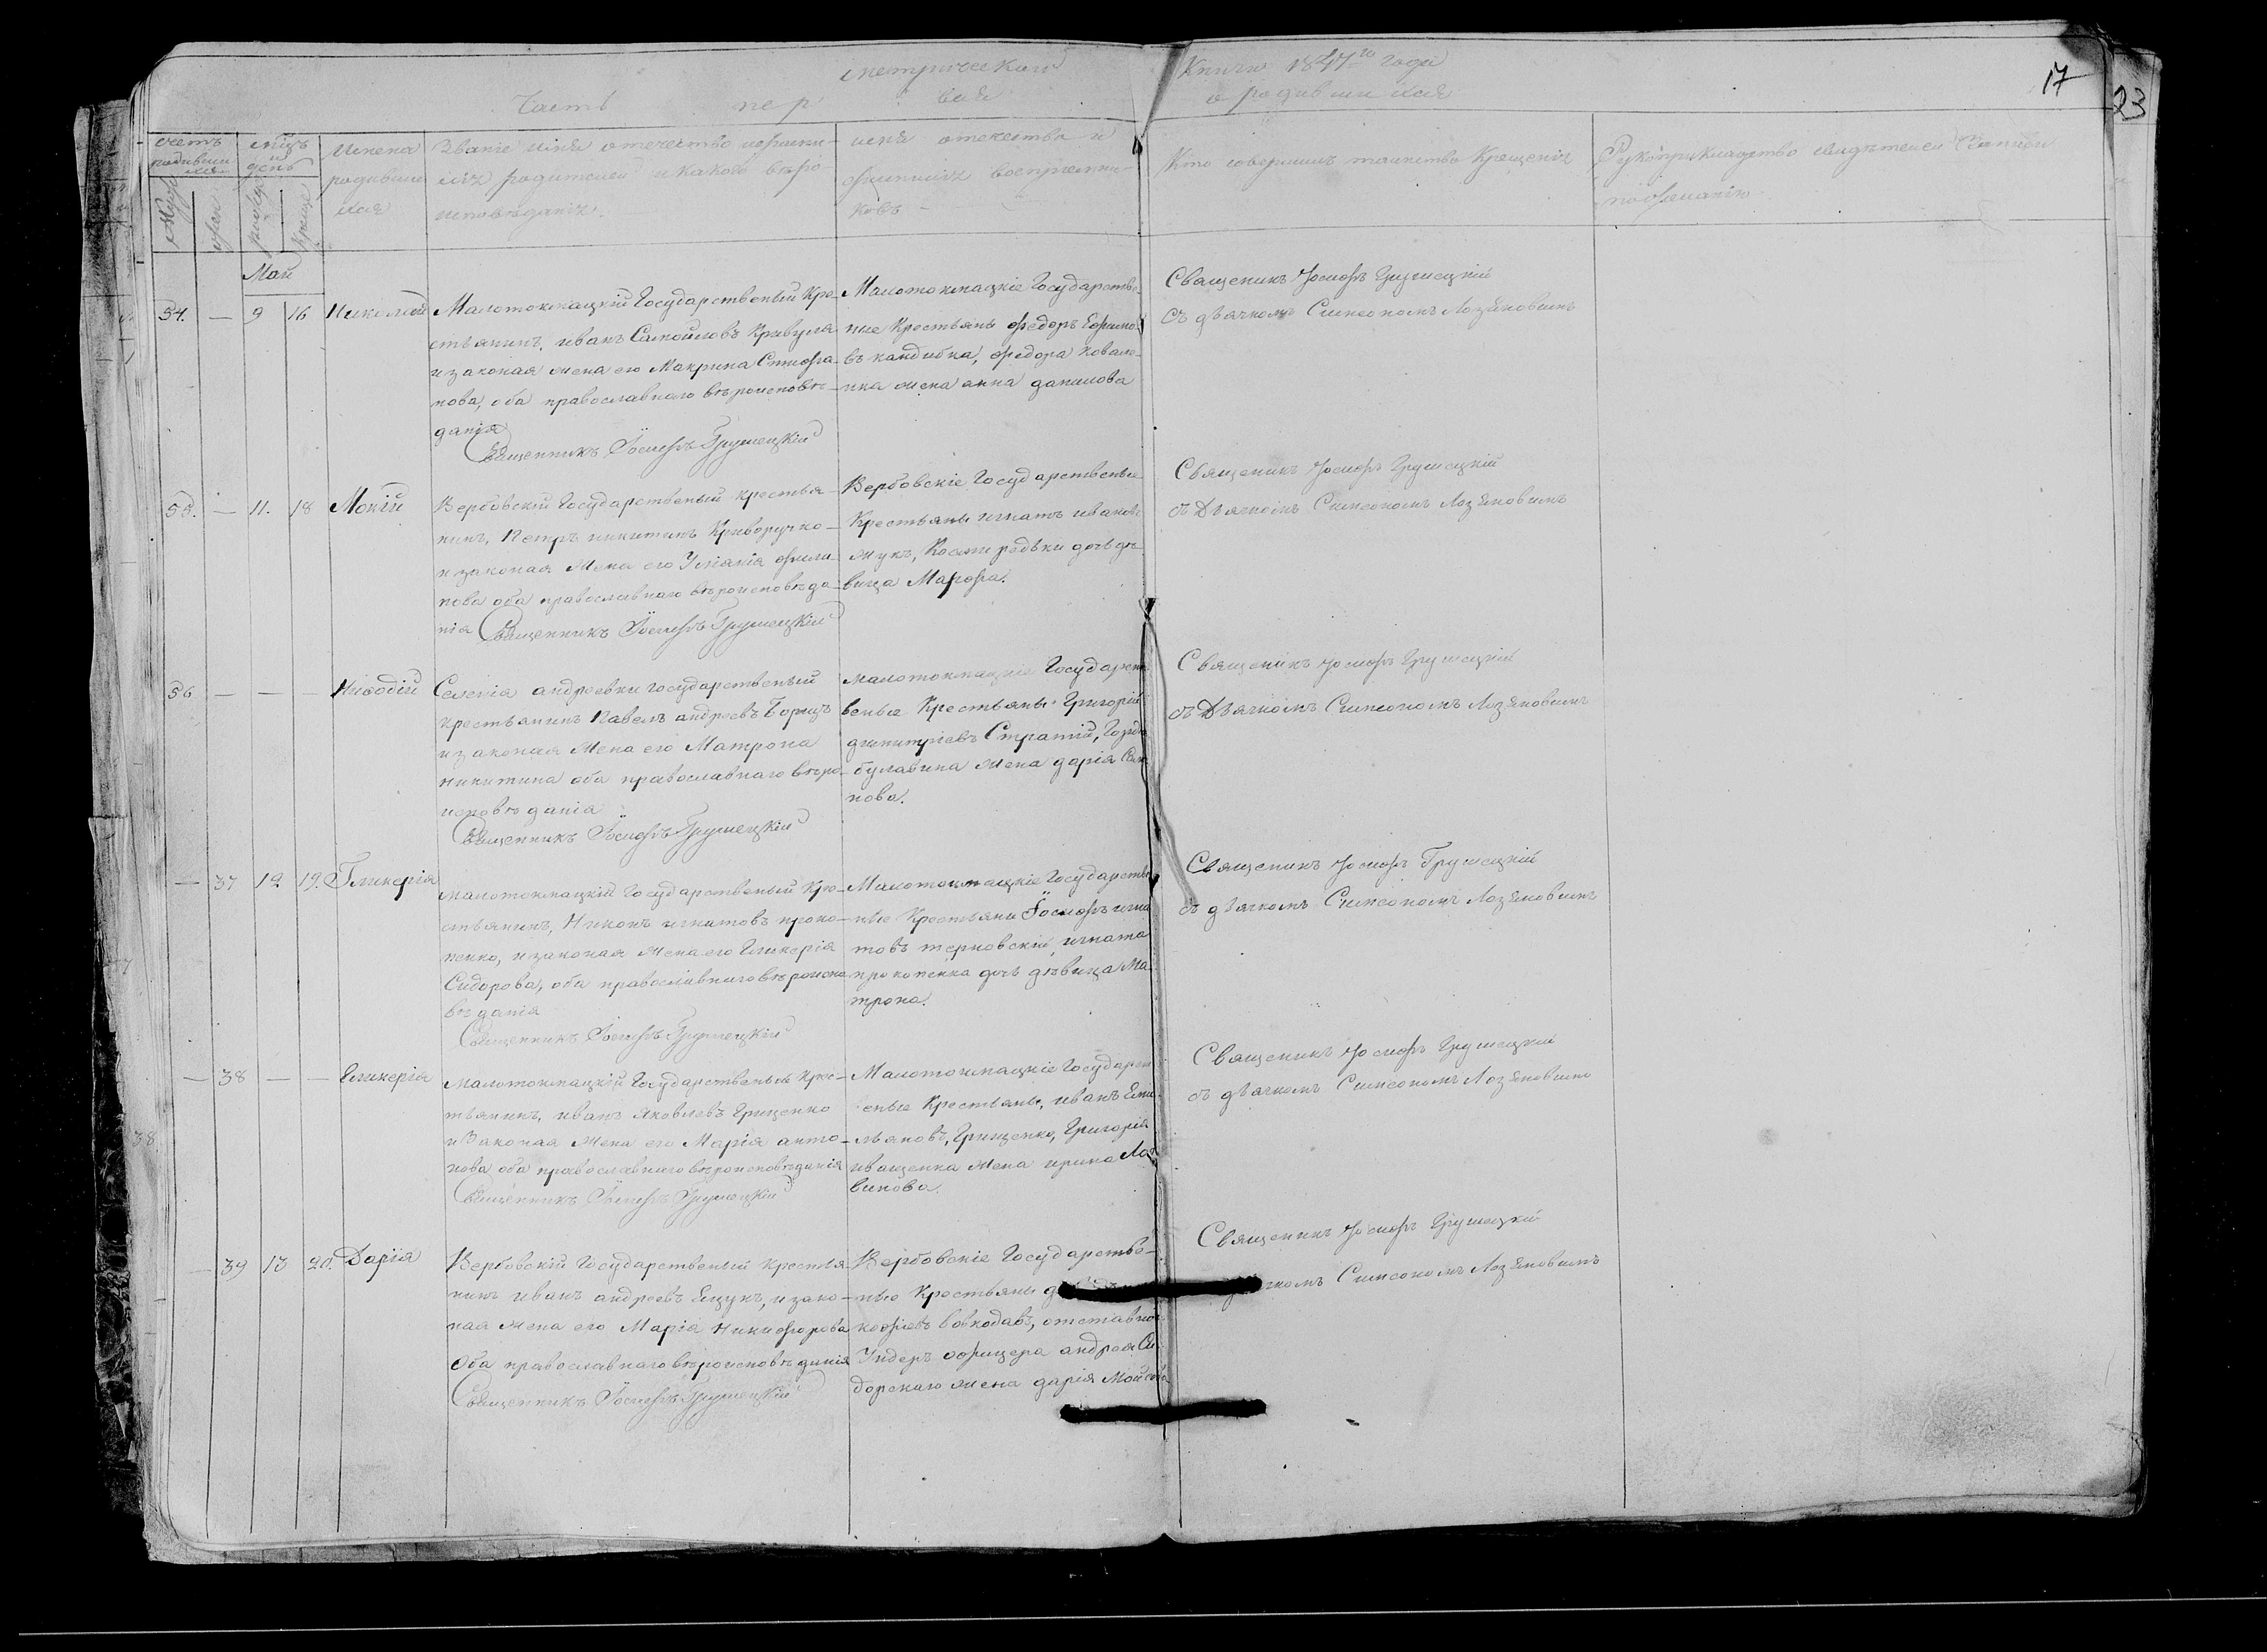 метрической
Книги 1847го года
17
23
Часть пер вая
о родившихся
счетъ родившихся
мцъ и день
Имена родившихся
Званіе имя отечество и фамилія родителей и какого вѣроисповѣданія.
имя отечество и фамилія воспріемниковъ
Кто совершилъ таинство Крещенія
Рукоприкладство свидѣтелей записи по желанію
Муж
жен
рожд
крещ
Май
54. — 9 16 Николай
Малотокмацкій Государственый Кре-
стьянинъ, иванъ Самойловъ Кривуля
и законая жена его Макрина Стефа-
нова, оба православнаго вѣроисповѣ-
данія
Священникъ Іосифъ Грушецкій
Малотокмацкіе Государстве-
ные Крестьяны федоръ Ефимо
въ кандибка, федора ковале-
нка жена анна данилова
Священикъ Іосифъ Грушецкій
съ дьячкомъ Симеономъ Лозяновымъ
55. — 11. 18 Мокій
Вербовскій Государственый крестья-
нинъ, Петръ никитинъ Криворучко-
и законая Жена его Уліянія фили-
пова оба православнаго вѣроисповѣда-
нія Священникъ Іосифъ Грушецкій
Вербовскіе Государственые
Крестьяны игнатъ ивановъ
жукъ, Космы редьки дочь дѣ-
вица Марфа.
Священикъ Іосифъ Грушецкій
съ Дьячкомъ Симеономъ Лозяновымъ
56 — — — Нифодій
Селенія андреевки государственый
крестьянинъ Павелъ андреевъ Борщъ
и законая Жена его Матрона
никитина оба православнаго вѣро-
исповѣданія
Священникъ Іосифъ Грушецкій
малотокмацкіе Государст
веные Крестьяны Григорій
димитріевъ Стратій,
булавина жена дарія
нова.
Священикъ Іосифъ Грушецкій
съ Дьячкомъ Симеономъ Лозяновымъ
— 37 12 19. Гликерія
малотокмацкій Государственый Кре-
стьянинъ, Никонъ игнатовъ проко-
пенко, и законая Жена его Гликерія
Сидорова, оба православнаго вѣроиспо-
вѣданія
Священникъ Іосифъ Грушецкій
Малотокмацкіе Государстве
ные Крестьяни Іосифъ игна
товъ терновскій, игната
прокопенка дочь дѣвица Ма-
трона.
Священикъ Іосифъ Грушецкій
съ дьячкомъ Симеономъ Лозяновымъ
— 38 — — Гликерія
малотокмацкій Государственый Крес-
тьянинъ, иванъ Яковлевъ Грищенко
и Законая Жена его Марія анто-
нова оба православнаго вѣроисповѣданія
Священникъ Іосифъ Грушецкій
Малотокмацкіе Государст
веные Крестьяны, иванъ Еми
льяновъ, Грищенко, Григорія
иващенка жена ирина Ло
винова.
Священикъ Іосифъ Грушецкій
съ дьячкомъ Симеономъ Лозяновымъ
— 39 13 20. Дарія
Вербовскій Государственый крестья-
нинъ иванъ андреевъ Ящукъ, и зако-
ная жена его Марія Никифорова
Оба православнаго вѣроисповѣданія
Священникъ Іосифъ Грушецкій
Вербовскіе Государстве-
ные Крестьяны
кофіевъ вовкодавъ, отставнои
Ундеръ офицера андрея Си-
дорскаго жена дарія
Священикъ Іосифъ Грушецкій
Симеономъ Лозяновымъ
38